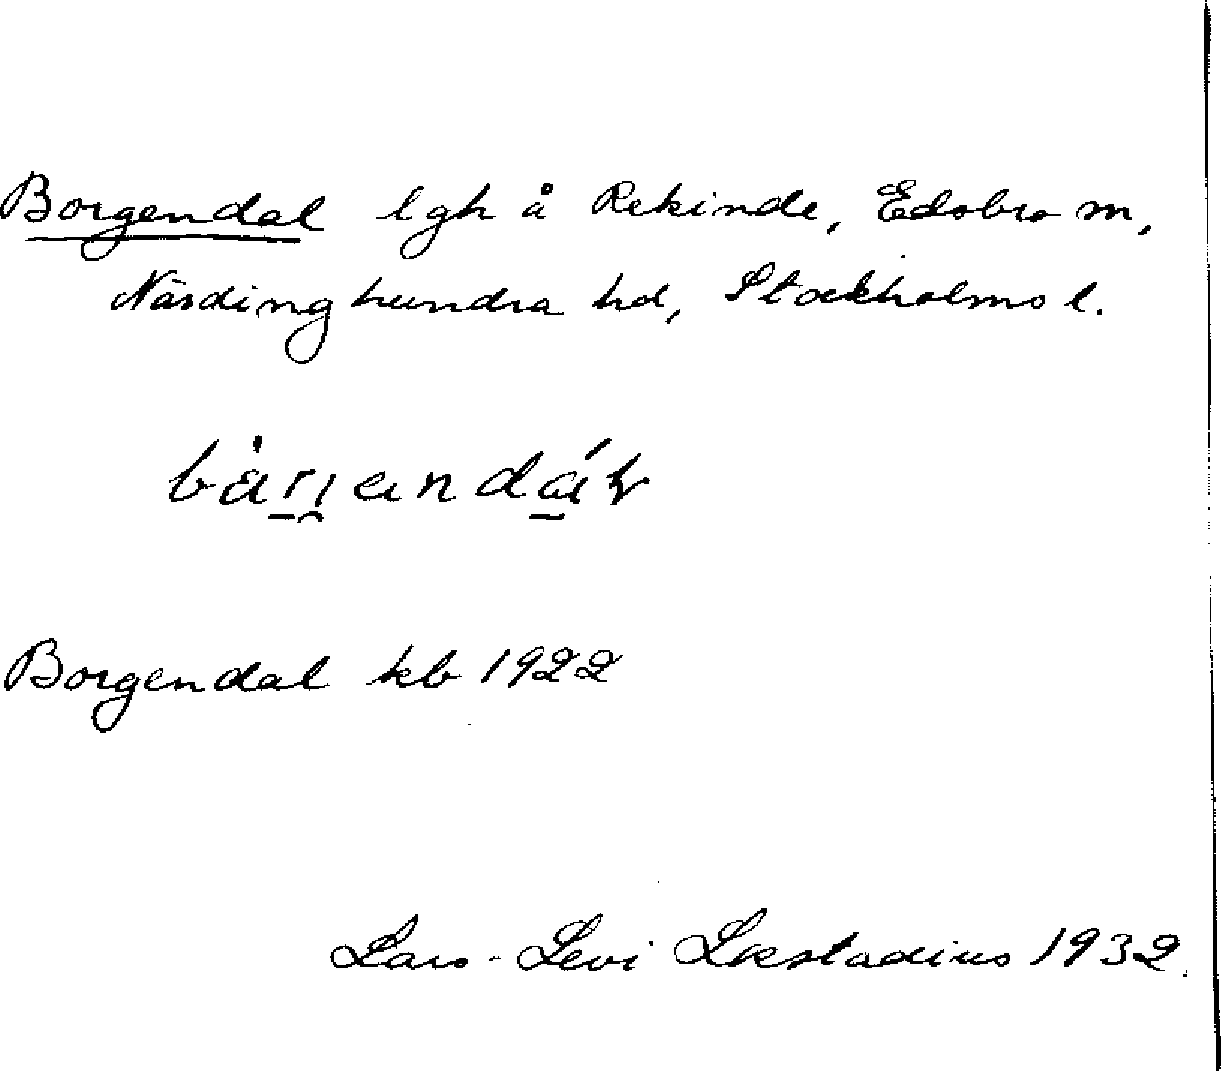 Borgendal lgh å Rekinde, Edsbro sn,
Närdinghundra hd, Stockholms l.
Borgendal kb 1922
Lars-Levi Læstadius 1932.